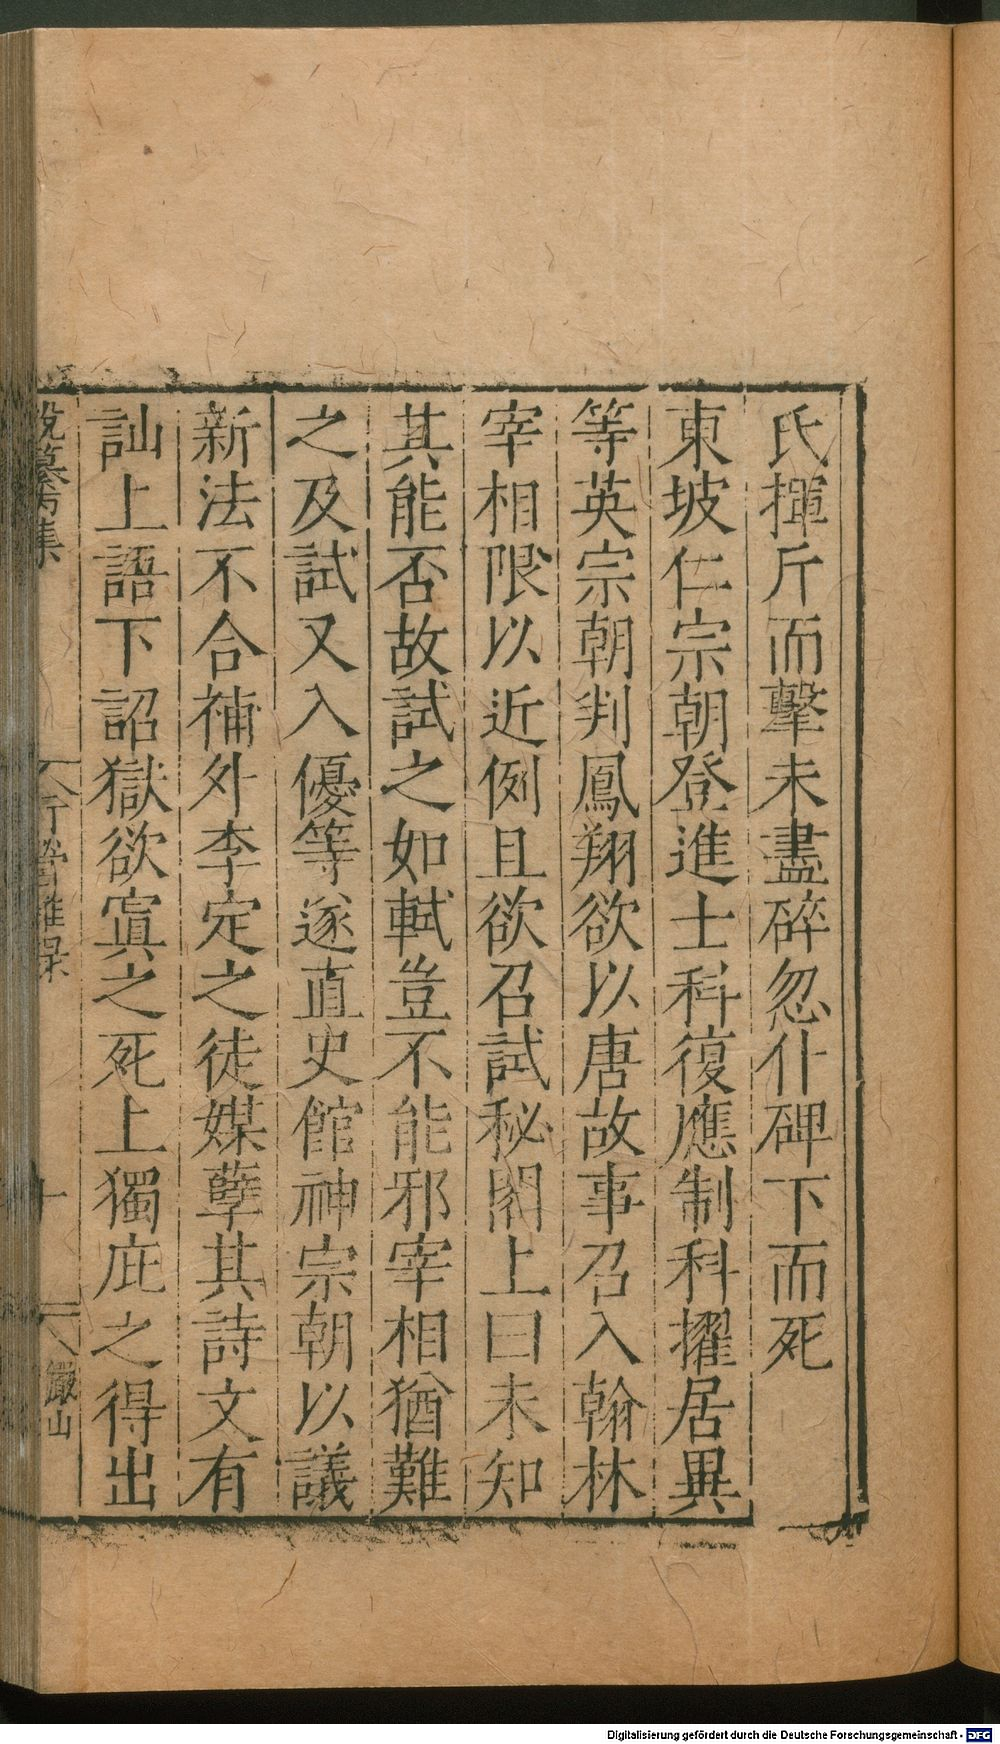 氏揮斤而擊未盡碎忽仆碑下而死
東坡仁宗朝登進士科復應制科擢居異
等英宗朝判鳳翔欲以唐故事召入翰林
宰相限以近例且欲召試秘閣上曰未知
其能否故試之如軾豈不能邪宰相猶難
之及試又入優等遂直史館神宗朝以議
新法不合補外李定之徒媒孽其詩文有
訕上語下詔獄欲寘之死上獨庇之得出
說纂丙集
行營雜录
十
儼山
Digitalisierung gefördert durch die Deutsche Forschungsgemeinschaft - DFG